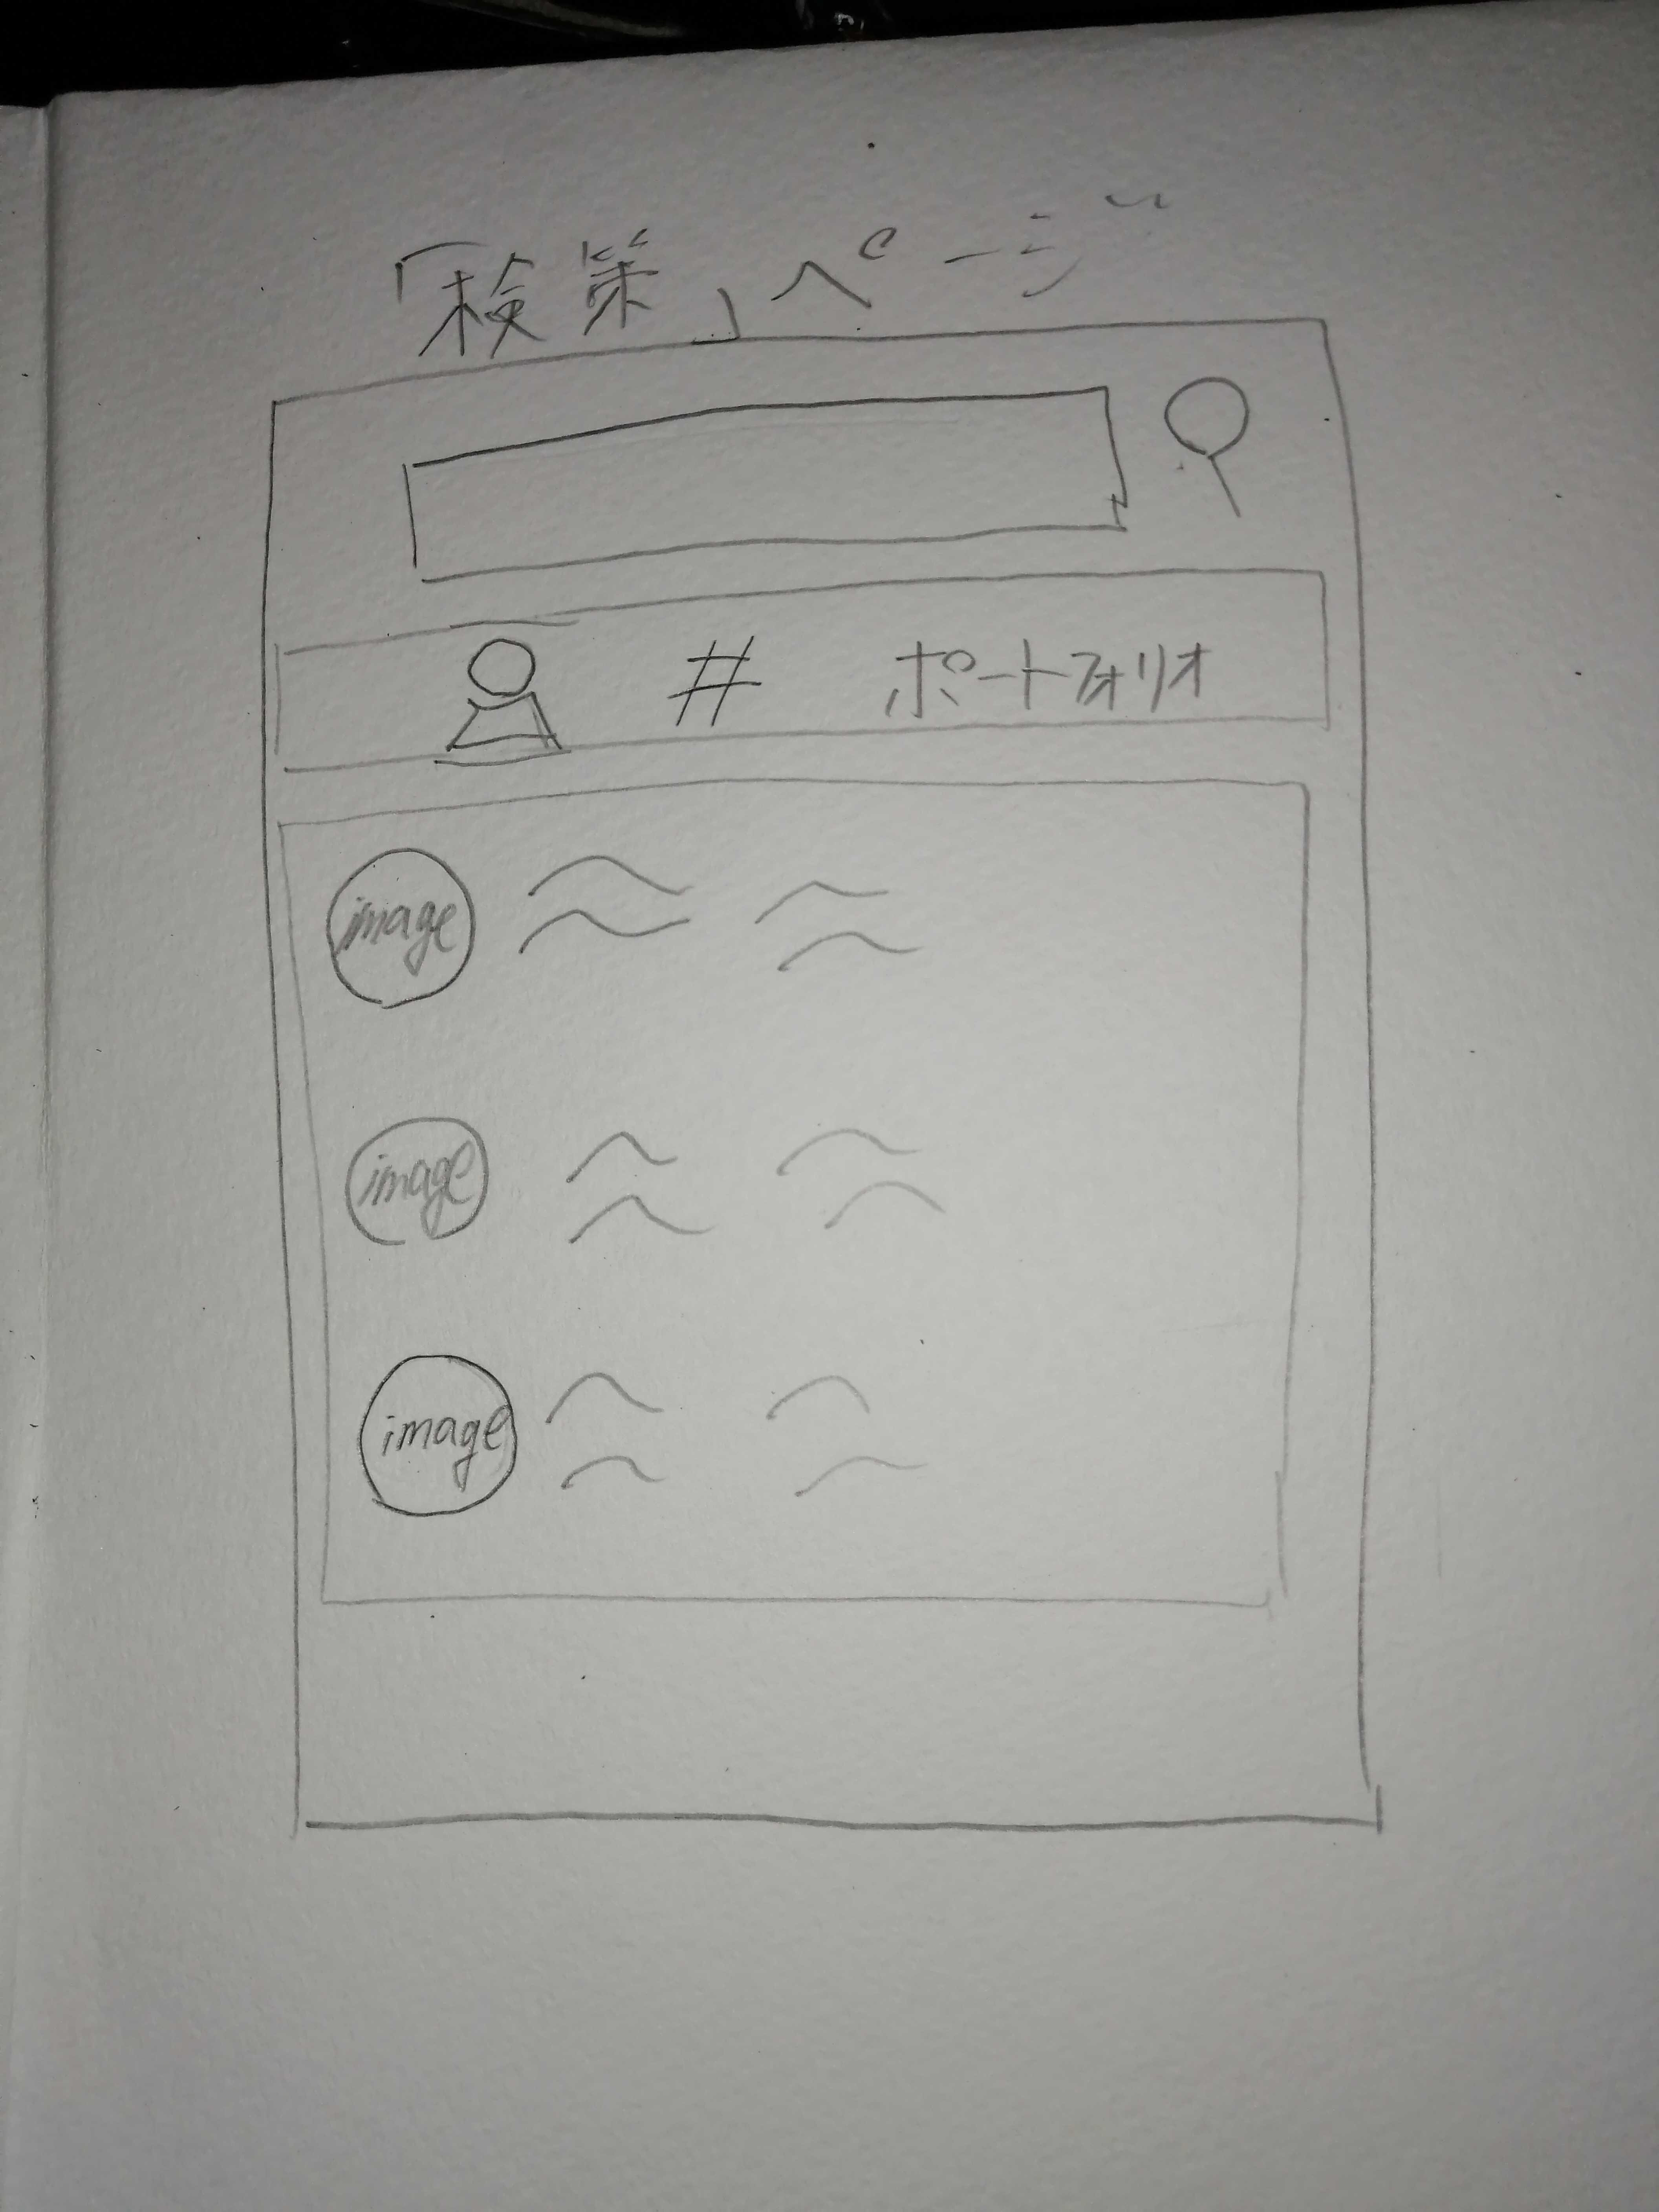 「検策」ページ
# ポートフォリオ
image
image
image